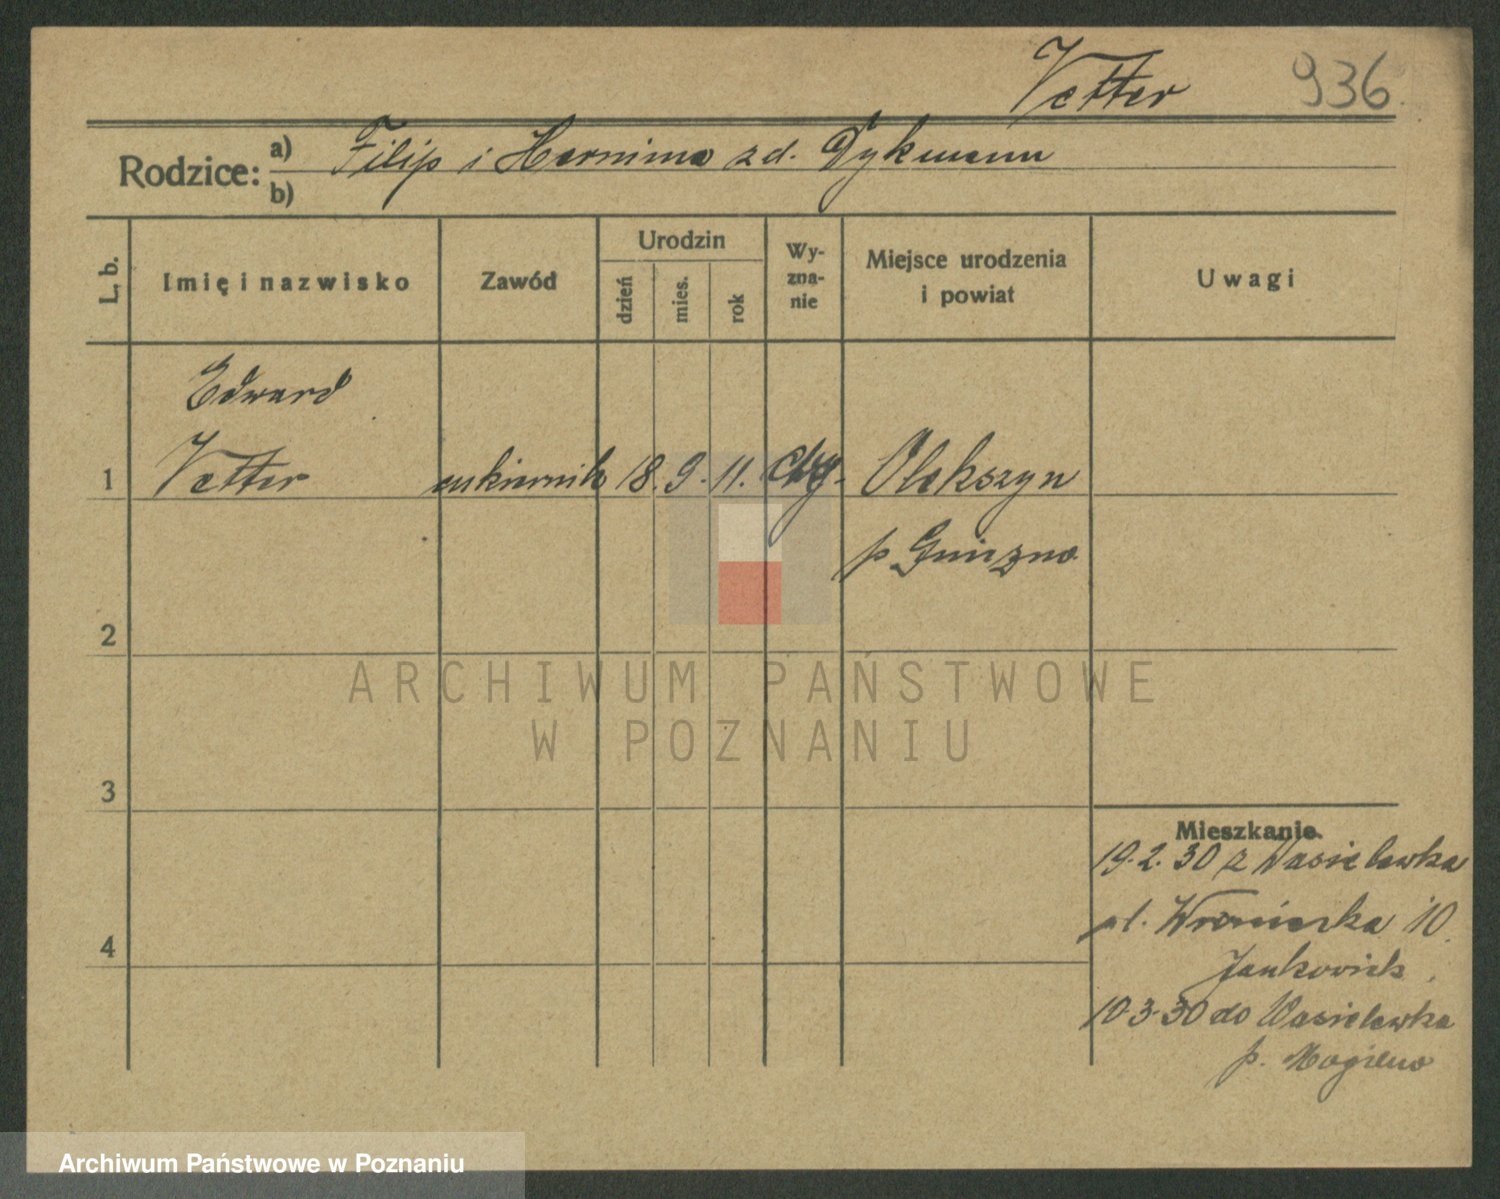 Vetter 936
Rodzice: a) Filip i Hermina zd. Dykmann
b)
L. b. Imię i nazwisko Zawód Urodzin dzień mies. rok Wy-zna-nie Miejsce urodzenia i powiat Uwagi
Edward
1 Vetter cukiernik 18. 9. 11. Olekszyn
p. Gniezno
2
ARCHIWUM PAŃSTWOWE
W POZNANIU
3
Mieszkanie
19.2.30 z Wasielewka
ul. Wroniecka 10.
Jankowiak
4
10.3.30 do Wasielewka
p. Mogilno
Archiwum Państwowe w Poznaniu